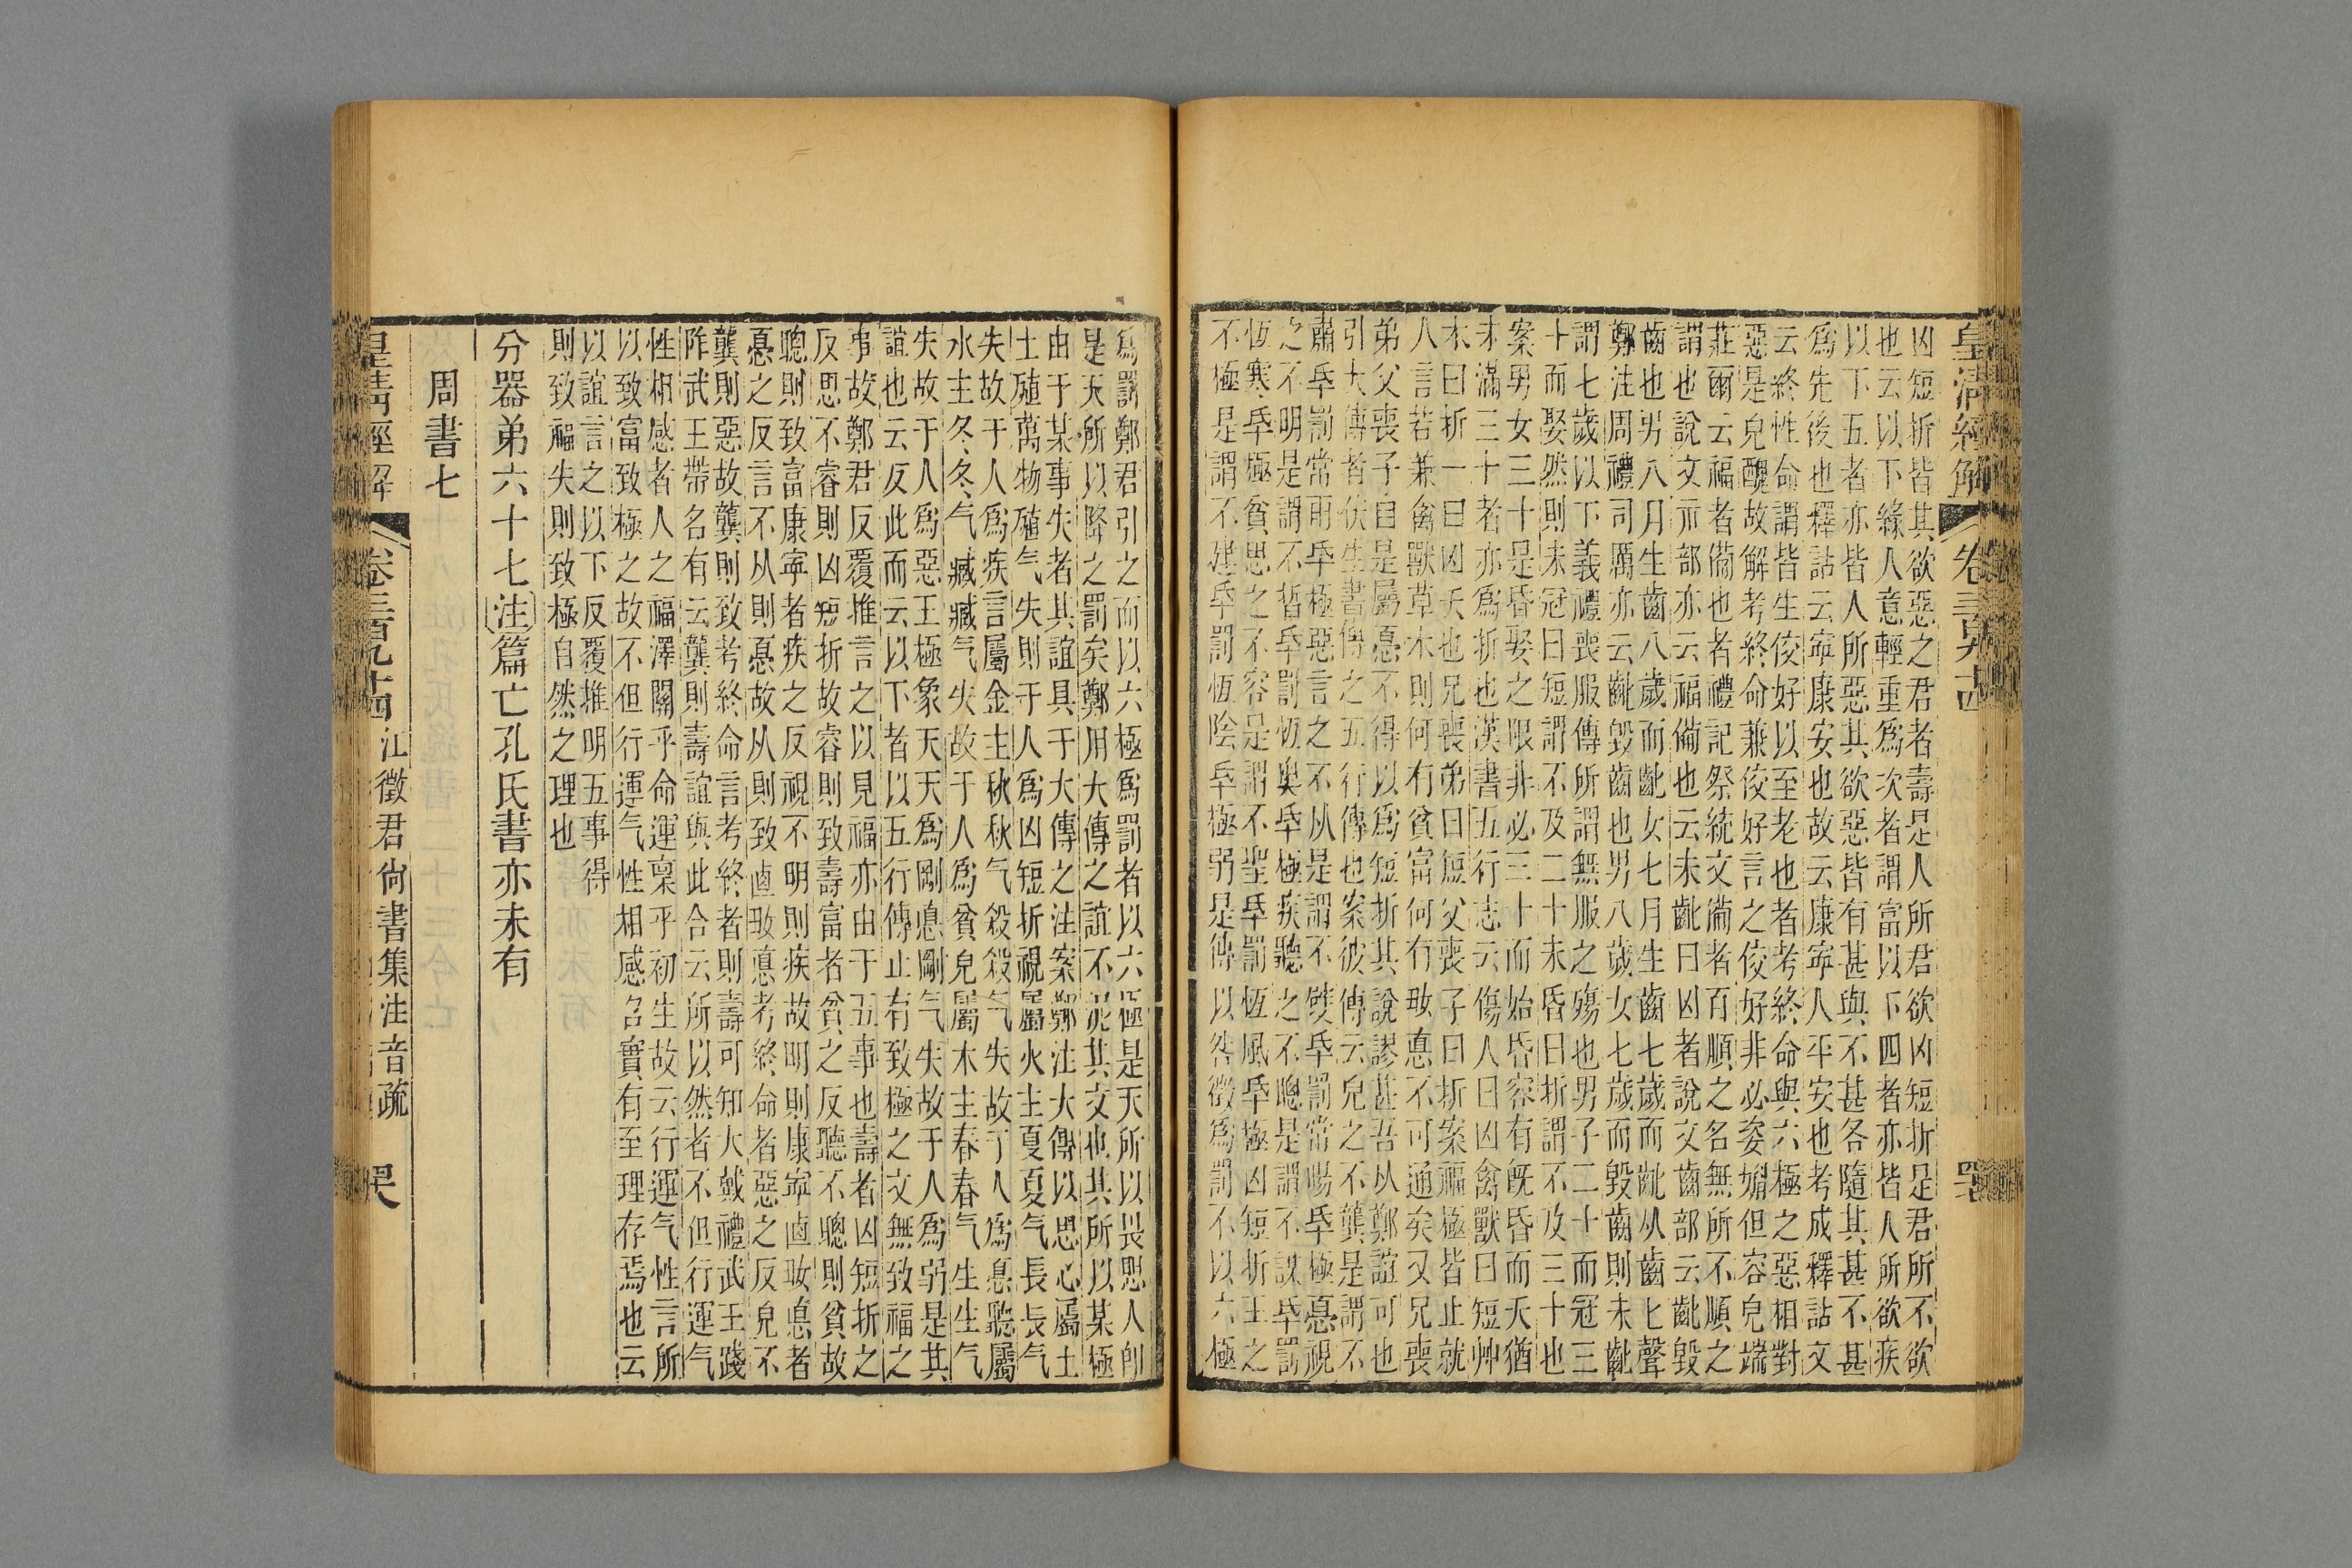 皇清經解
凶短折皆其欲惡之君者壽是人所君欲凶短折是君所不欲
也云以下緣人意輕重爲次者謂富以下四者亦皆人所欲疾
以下五者亦皆人所惡其欲惡皆有甚與不甚各隨其甚不甚
爲先後也釋詁云寧康安也故云康寧人平安也考成釋詁文
云終性命謂皆生佼好以至老也者考終命與六極之惡相對
惡是皃醜故解考終命兼佼好言之佼好非必姿媚但容皃端
莊爾云福者僃也者禮記祭統文僃者百順之名無所不順之
謂也說文示部亦云福僃也云未齓曰凶者說文齒部云齓毀
齒也男八月生齒八歲而齓女七月生齒七歲而齓从齒匕聲
鄭注周禮司厲亦云齓毀齒也男八歲女七歲而毀齒則未齓
謂七歲以下義禮喪服傳所謂無服之殤也男子二十而冠三
十而娶然則未冠曰短謂不及二十未昏曰折謂不及三十也
案男女三十是昏娶之限非必三十而始昏容有旣昏而夭猶
未滿三十者亦爲折也漢書五行志云傷人曰凶禽獸曰短艸
木曰折一曰凶夭也兄喪弟曰短父喪子曰折案福極皆止就
人言若兼禽獸草木則何有貧富何有攷惪不可通矣又兄喪
弟父喪子自是屬惪不得以爲短折其說謬甚吾从鄭誼可也
引大傳者伏生書傳之五行傳也案彼傳云皃之不龔是謂不
肅厥罰常雨厥極惡言之不从是謂不䢃厥罰常暘厥極惪視
之不明是謂不晢厥罰恆奥厥極疾聽之不聰是謂不謀厥罰
恆寒厥極貧思之不容是謂不聖厥罰恆風厥極凶短折王之
不極是謂不建厥罰恆陰厥極弱是傳以咎徵爲罰不以六極
爲罰鄭君引之而以六極爲罰者以六極是天所以畏思人卽
是天所以降之罰矣鄭用大傳之誼不泥其文也其所以某極
由于某事失者其誼具于大傳之注案鄭注大傳以思心屬土
土殖萬物殖气失則于人爲凶短折視屬火主夏夏气長長气
失故于人爲疾言屬金主秋秋气殺殺气失故于人爲惪聽屬
水主冬冬气臧臧气失故于人爲貧皃屬木主春春气生生气
失故于人爲惡王極象天天爲剛惪剛气失故于人爲弱是其
誼也云反此而云以下者以五行傳止有致極之文無致福之
事故鄭君反覆推言之以見福亦由于五事也壽者凶短折之
反思不睿則凶短折故睿則致壽富者貧之反聽不聰則貧故
聰則致富康寧者疾之反視不明則疾故明則康寧卣攷惪者
惪之反言不从則惪故从則致卣攷惪考終命者惡之反皃不
龔則惡故龔則致考終命言考終者則壽可知大戴禮武王踐
阼武王帶名有云龔則壽誼與此合云所以然者不但行運气
性相感者人之福澤關乎命運稟乎初生故云行運气性言所
以致富致極之故不但行運气性相感召實有至理存焉也云
以誼言之以下反覆推明五事得
則致福失則致極自然之理也
分器弟六十七注篇亡孔氏書亦未有
周書七
皇淸經解
江徵君尙書集注音疏